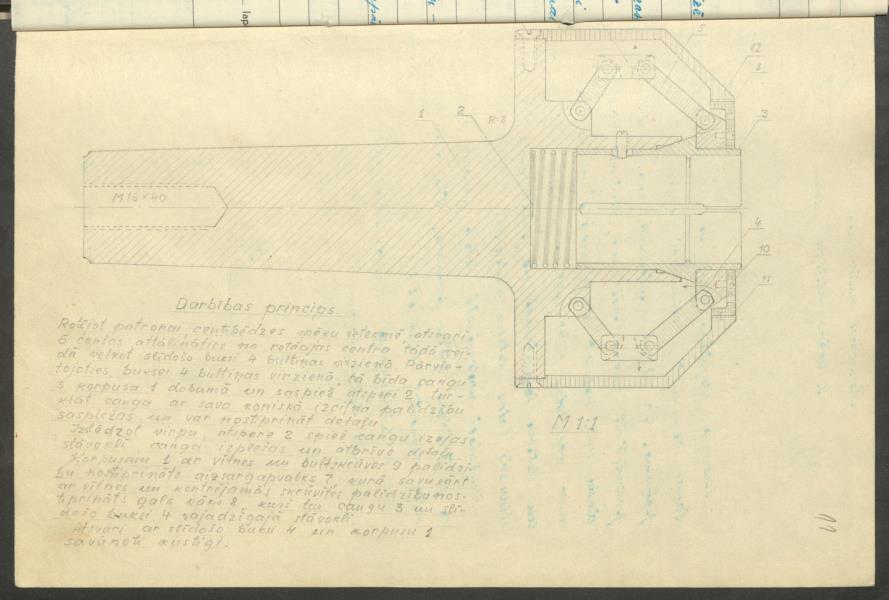 lap
5
12
8
1
2
R-8
3
M16×40
4
10
11
Darbības princips.
Rotējot patronai centrbēdzes spēku ietekmē atsvari
6 cenšas attālināties no rotācijas centra tādā vei-
dā velkot slīdošo buksi 4 bultiņas virzienā. Pārvie-
tojoties buksei 4 bultiņas virzienā, tā bīda cangu
3 korpusa 1 dobumā un saspiež atsperi 2. Tur-
klāt canga ar sava koniskā izciļņa palīdzību
saspiežas un var nostiprināt detaļu.
Izslēdzot virpu, atspere 2 spiež cangu izejas
stāvoklī canga izplešas un atbrīvo detaļu
Korpusam 1 ar vītnes un bultskrūves 9 palīdzī-
bu nostiprināts aizsargapvalks 7, kurā savukārt
ar vītnes un kontrējamās skrūvītes palīdzību nos-
tiprināts gala vāks 8 kurš tur cangu 3 un slī-
došo buksi 4 vajadzīgajā stāvoklī.
Atsvari ar slīdošo buksi 4 un korpusu 1
savienoti kustīgi.
M 1:1